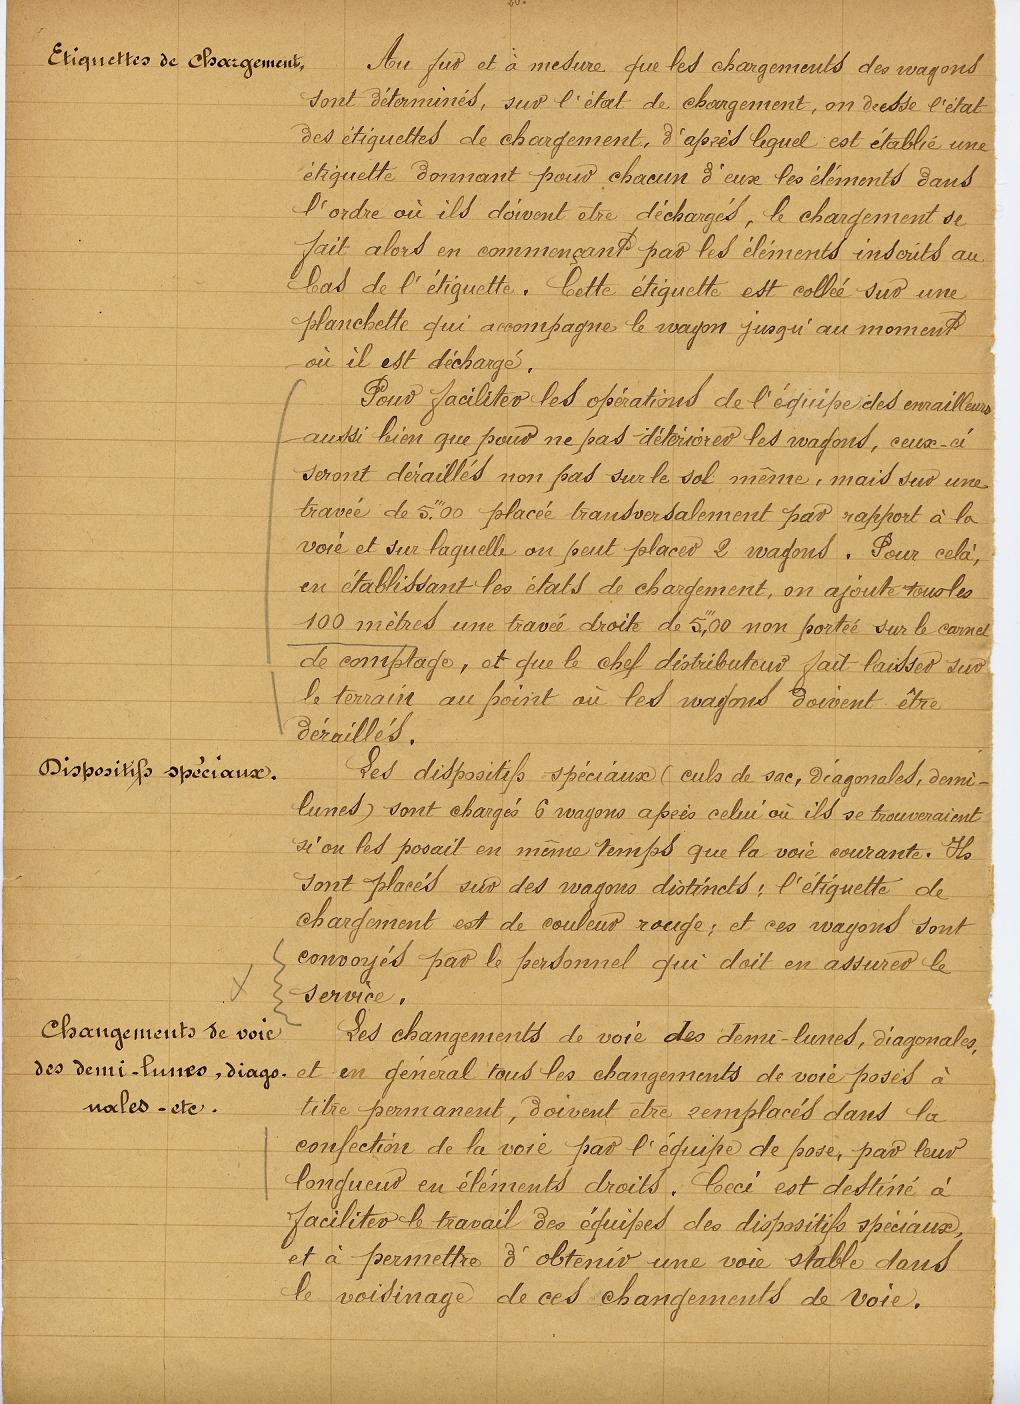 Etiquettes de Chargement.
Au fur et à mesure que les chargements des wagons
sont déterminés, sur l'état de chargement, on dresse l'état
des étiquettes de chargement, d'après lequel est établie une
étiquette donnant pour chacun d'eux les éléments dans
l'ordre où ils doivent être déchargés, le chargement se
fait alors en commençant par les éléments inscrits au
bas de l'étiquette. Cette étiquette est collée sur une
planchette qui accompagne le wagon jusqu'au moment
où il est déchargé.
Pour faciliter les opérations de l'équipe des enrailleurs
aussi bien que pour ne pas détériorer les wagons, ceux-ci
seront déraillés non pas sur le sol même, mais sur une
travée de 5.m00 placée transversalement par rapport à la
voie et sur laquelle on peut placer 2 wagons. Pour celà,
en établissant les états de chargement, on ajoute tous les
100 mètres une travée droite de 5,m00 non portée sur le carnet
de comptage, et que le chef distributeur fait laisser sur
le terrain au point où les wagons doivent être
déraillés.
Dispositifs spéciaux.
Les dispositifs spéciaux (culs de sac, diagonales, demi-
lunes) sont chargés 6 wagons après celui où ils se trouveraient
si on les posait en même temps que la voie courante. Ils
sont placés sur des wagons distincts; l'étiquette de
chargement est de couleur rouge; et ces wagons sont
convoyés par le personnel qui doit en assurer le
service.
Changements de voie
des demi-lunes, diago-
nales - etc.
Les changements de voie des demi-lunes, diagonales,
et en général tous les changements de voie posés à
titre permanent, doivent être remplacés dans la
confection de la voie par l'équipe de pose, par leur
longueur en éléments droits. Ceci est destiné à
faciliter le travail des équipes des dispositifs spéciaux,
et à permettre d'obtenir une voie stable dans
le voisinage de ces changements de voie.